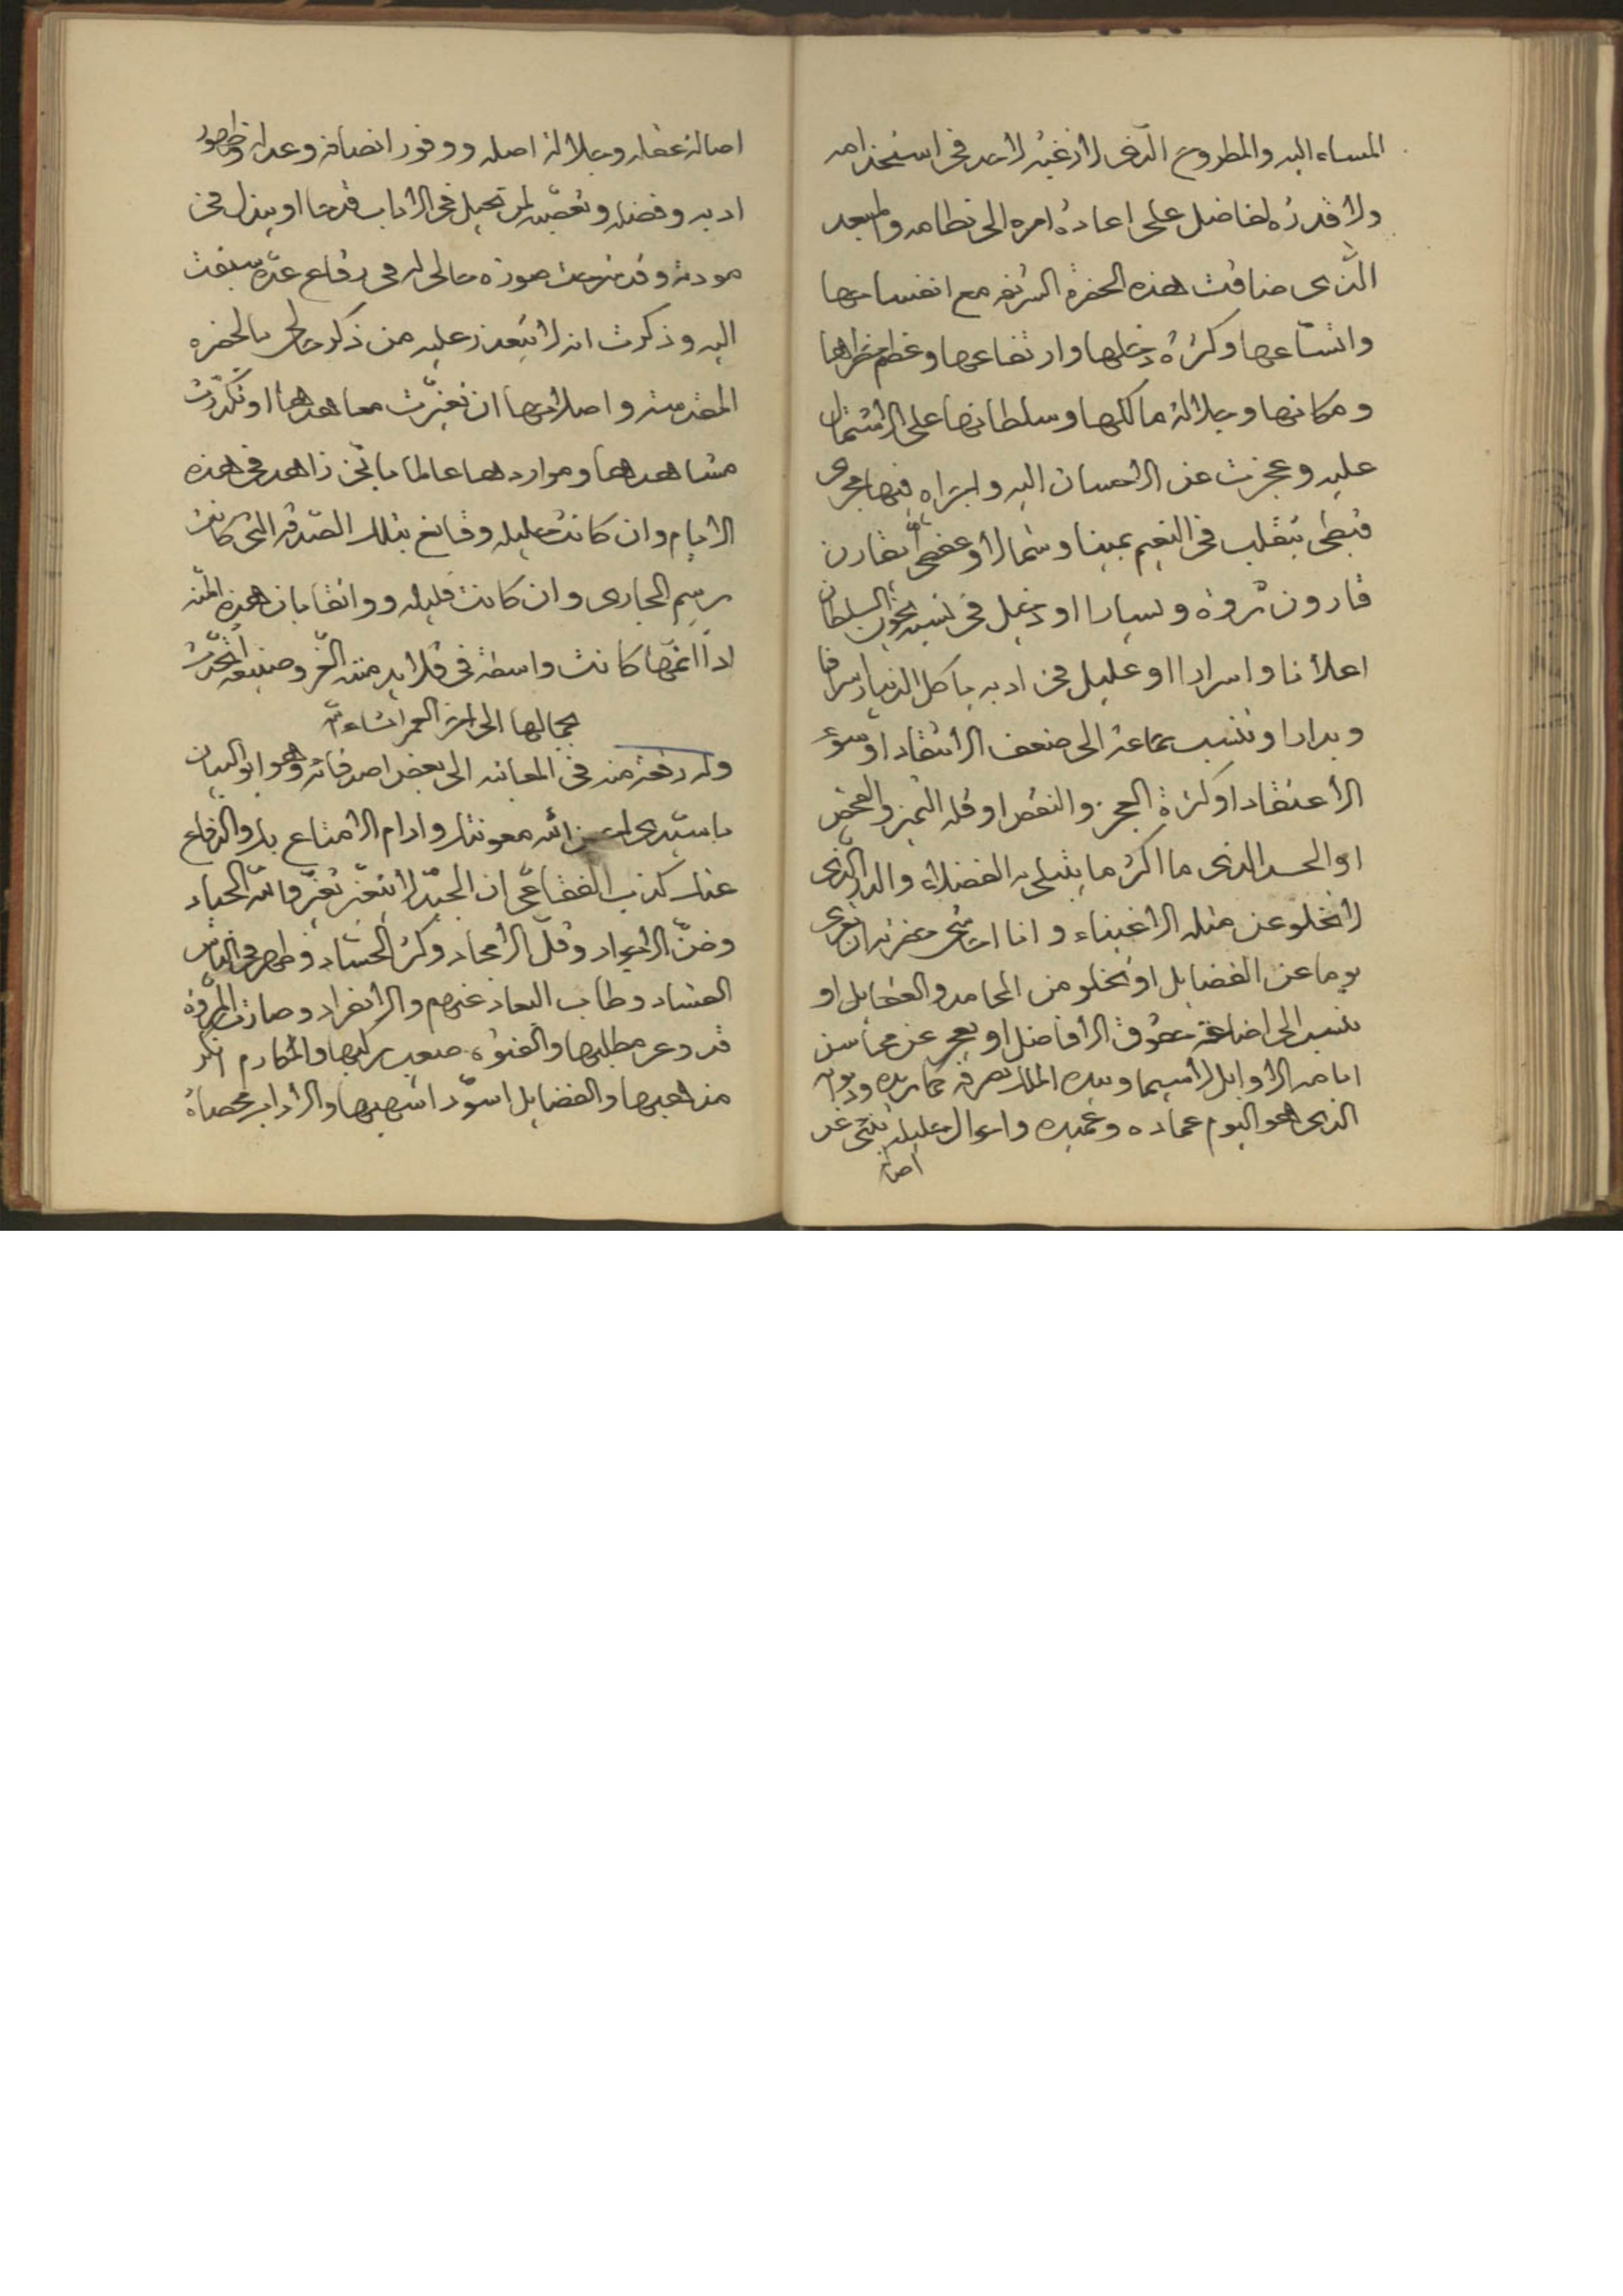 المساء اليه والمطروح الذى لا رغبة لاحد فى استخدامه
ولا قدرة لفاضل على اعادة امره الى نظامه والمبعد
الذى ضاقت هذه الحضرة الشريفه مع انفساحها
واتساعها وكثرة دخلها وارتفاعها وعظم خطرها
ومكانها وجلالة مالكها وسلطانها على الاشتمال
عليه وعجزت عن الاحسان اليه واجراه فيها مجرى
نبطى يتقلب فى النعيم يمينا وشمالا او عفطى يقارن
قارون ثروة ويسارا او دخيل فى نسبه يخون السلطان
اعلانا واسرارا او عليل فى ادبه ياكل الدنيا اسرافا
وبدارا وتنسب جماعة الى ضعف الانتقاد او سوء
الاعتقاد او كثرة العجز والنقص او قله التميز والفحص
او الحسد الذى ما اكثر ما يبتلى به الفضلاء والداء الذى
لا تخلو عن مثله الاغبياء وانا احاشى حضرته ان تعرى
يوما عن الفضايل او تخلو من المحامد والفضايل او
تنسب الى اضاعة حقوق الافاضل او يعجز عن محاسن
ايامه الاوايل لاسيما وبيده الملك يصرفه كما يريده وديوانه
الذى هو اليوم عماده وعميده واحوال جليله تنبى عن
اصالة
اصالة عقله وجلالة اصله ووفور انصافه وعدله وظهور
ادبه وفضله وتعصبه لمن تحيل فى الاداب قدحا او يبذل فى
مودته وقد شرحت صورة حالى له فى رقاع عدة سبقت
اليه وذكرت انه لا يتعذر عليه من ذكر حالى بالحضره
المقدسة واصلاحها ان تغيرت معاهدها او تكدرت
مشاهدها ومواردها عالما باننى زاهد فى هذه
الايام وان كانت جليله وقانع بتلك الصدقه التى كانت
برسم الجارى وان كانت قليله وواثقا بان هذه المنه
اذا اتمها كانت واسطة فى قلايد مننه الغر وصنيعة يتحدث
بجمالها الى اخر العمر ان شاء الله
وله رقعة منه فى المعاتبه الى بعض اصدقائه وهو ابو البيان
يا سيدى احسن الله معونتك وادام الامتاع بك والدفاع
عنك كذب الفقاعى ان الجيد لا يتغير تغير والله الجياد
وضن الاجواد وقل الامجاد وكثر الحساد وظهر فى الناس
الفساد وطاب البعاد عنهم والانفراد وصارت المروة
قد وعر مطلبها والفتوة صعب مركبها والمكارم انكر
مذاهبها والفضايل اسود اشهبها والاداب محصاة